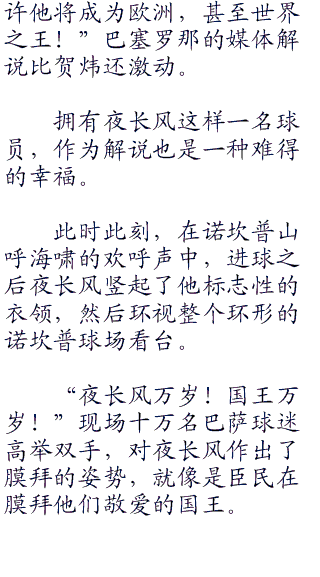 许他将成为欧洲，甚至世界
之王！”巴塞罗那的媒体解
说比贺炜还激动。
拥有夜长风这样一名球
员，作为解说也是一种难得
的幸福。
此时此刻，在诺坎普山
呼海啸的欢呼声中，进球之
后夜长风竖起了他标志性的
衣领，然后环视整个环形的
诺坎普球场看台。
“夜长风万岁！国王万
岁！”现场十万名巴萨球迷
高举双手，对夜长风作出了
膜拜的姿势，就像是臣民在
膜拜他们敬爱的国王。